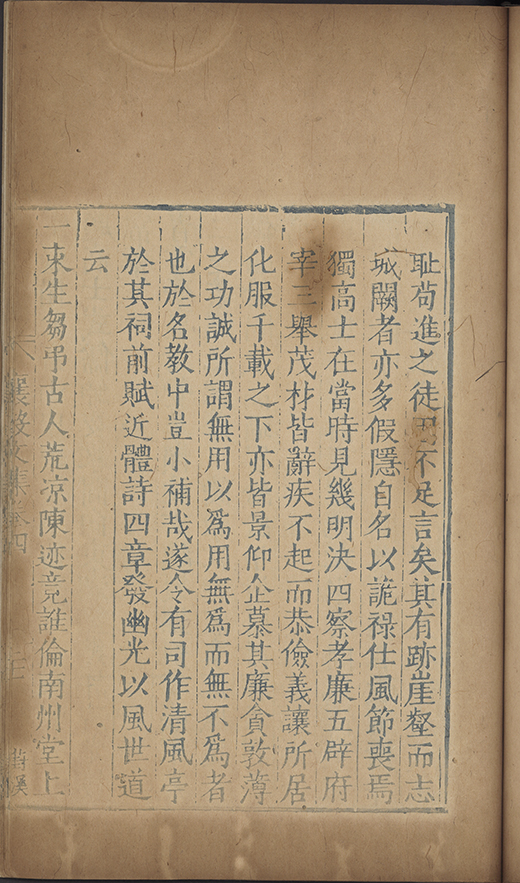 耻苟進之徒固不足言矣其有跡崖壑而志
城闕者亦多假隱自名以詭祿仕風節喪焉
獨高士在當時見幾明決四察孝廉五辟府
宰三舉茂材皆辭疾不起而恭儉義讓所居
化服千載之下亦皆景仰企慕其廉貪敦薄
之功誠所謂無用以爲用無爲而無不爲者
也於名教中豈小補哉遂令有司作清風亭
於其祠前賦近體詩四章發幽光以風世道
云
一束生芻弔古人荒凉陳迹竞誰倫南州堂上
襄毅文集卷四